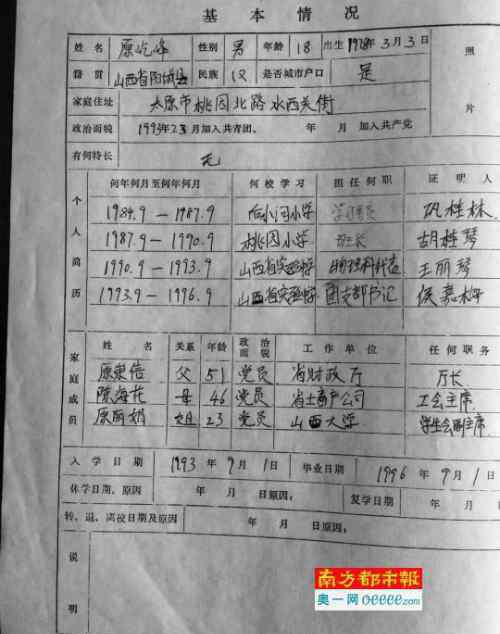 基本情况
姓名 原屹峰 性别 男 年龄 18 出生 1978年3月3日
籍贯 山西省阳城县 民族 汉 是否城市户口 是
照片
家庭住址 太原市桃园北路水西关街
政治面貌 1993年2.3月加入共青团。 年 月 加入共产党
有何特长 无
个人简历
何年何月至何年何月 何校学习 担任何职 证明人
1984.9—1987.9 小学 学习委员 巩桂林
1987.9—1990.9 桃园小学 班长 胡桂琴
1990.9—1993.9 山西省实验中学 物理科代表 王丽琴
1993.9—1996.9 山西省实验中学 团支部书记 侯嘉
家庭成员
姓名 关系 年龄 政治面貌 工作单位 任何职务
原 父 51 党员 省财政厅 厅长
陈海花 母 46 党员 省土畜产公司 工会主席
原丽娟 姐 23 党员 山西大学 学生会副主席
入学日期 1993年9月1日 毕业日期 1996年9月1日
休学日期、原因 年 月 日原因: 复学日期 年 月
转、退、离校日期及原因 年 月 日原因:
说明
南方都市報
奥一网 oeeee.com